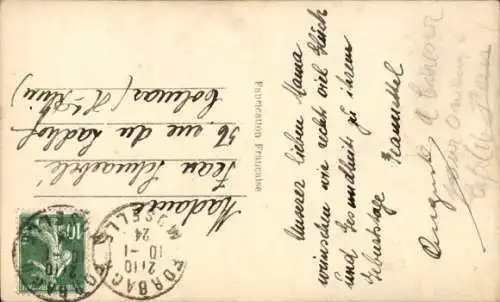 Unserer lieben Mama
wünschen wir recht viel Glück
und Gesundheit zu ihrem
Geburtstage Jeannetel
August
Fabrication Française
Madame
Jean Schwaeblé
56 rue du Ladhof
Colmar (Ht Rhin)
FORBAC
MOSELLE
21 10
10 -1
24
10